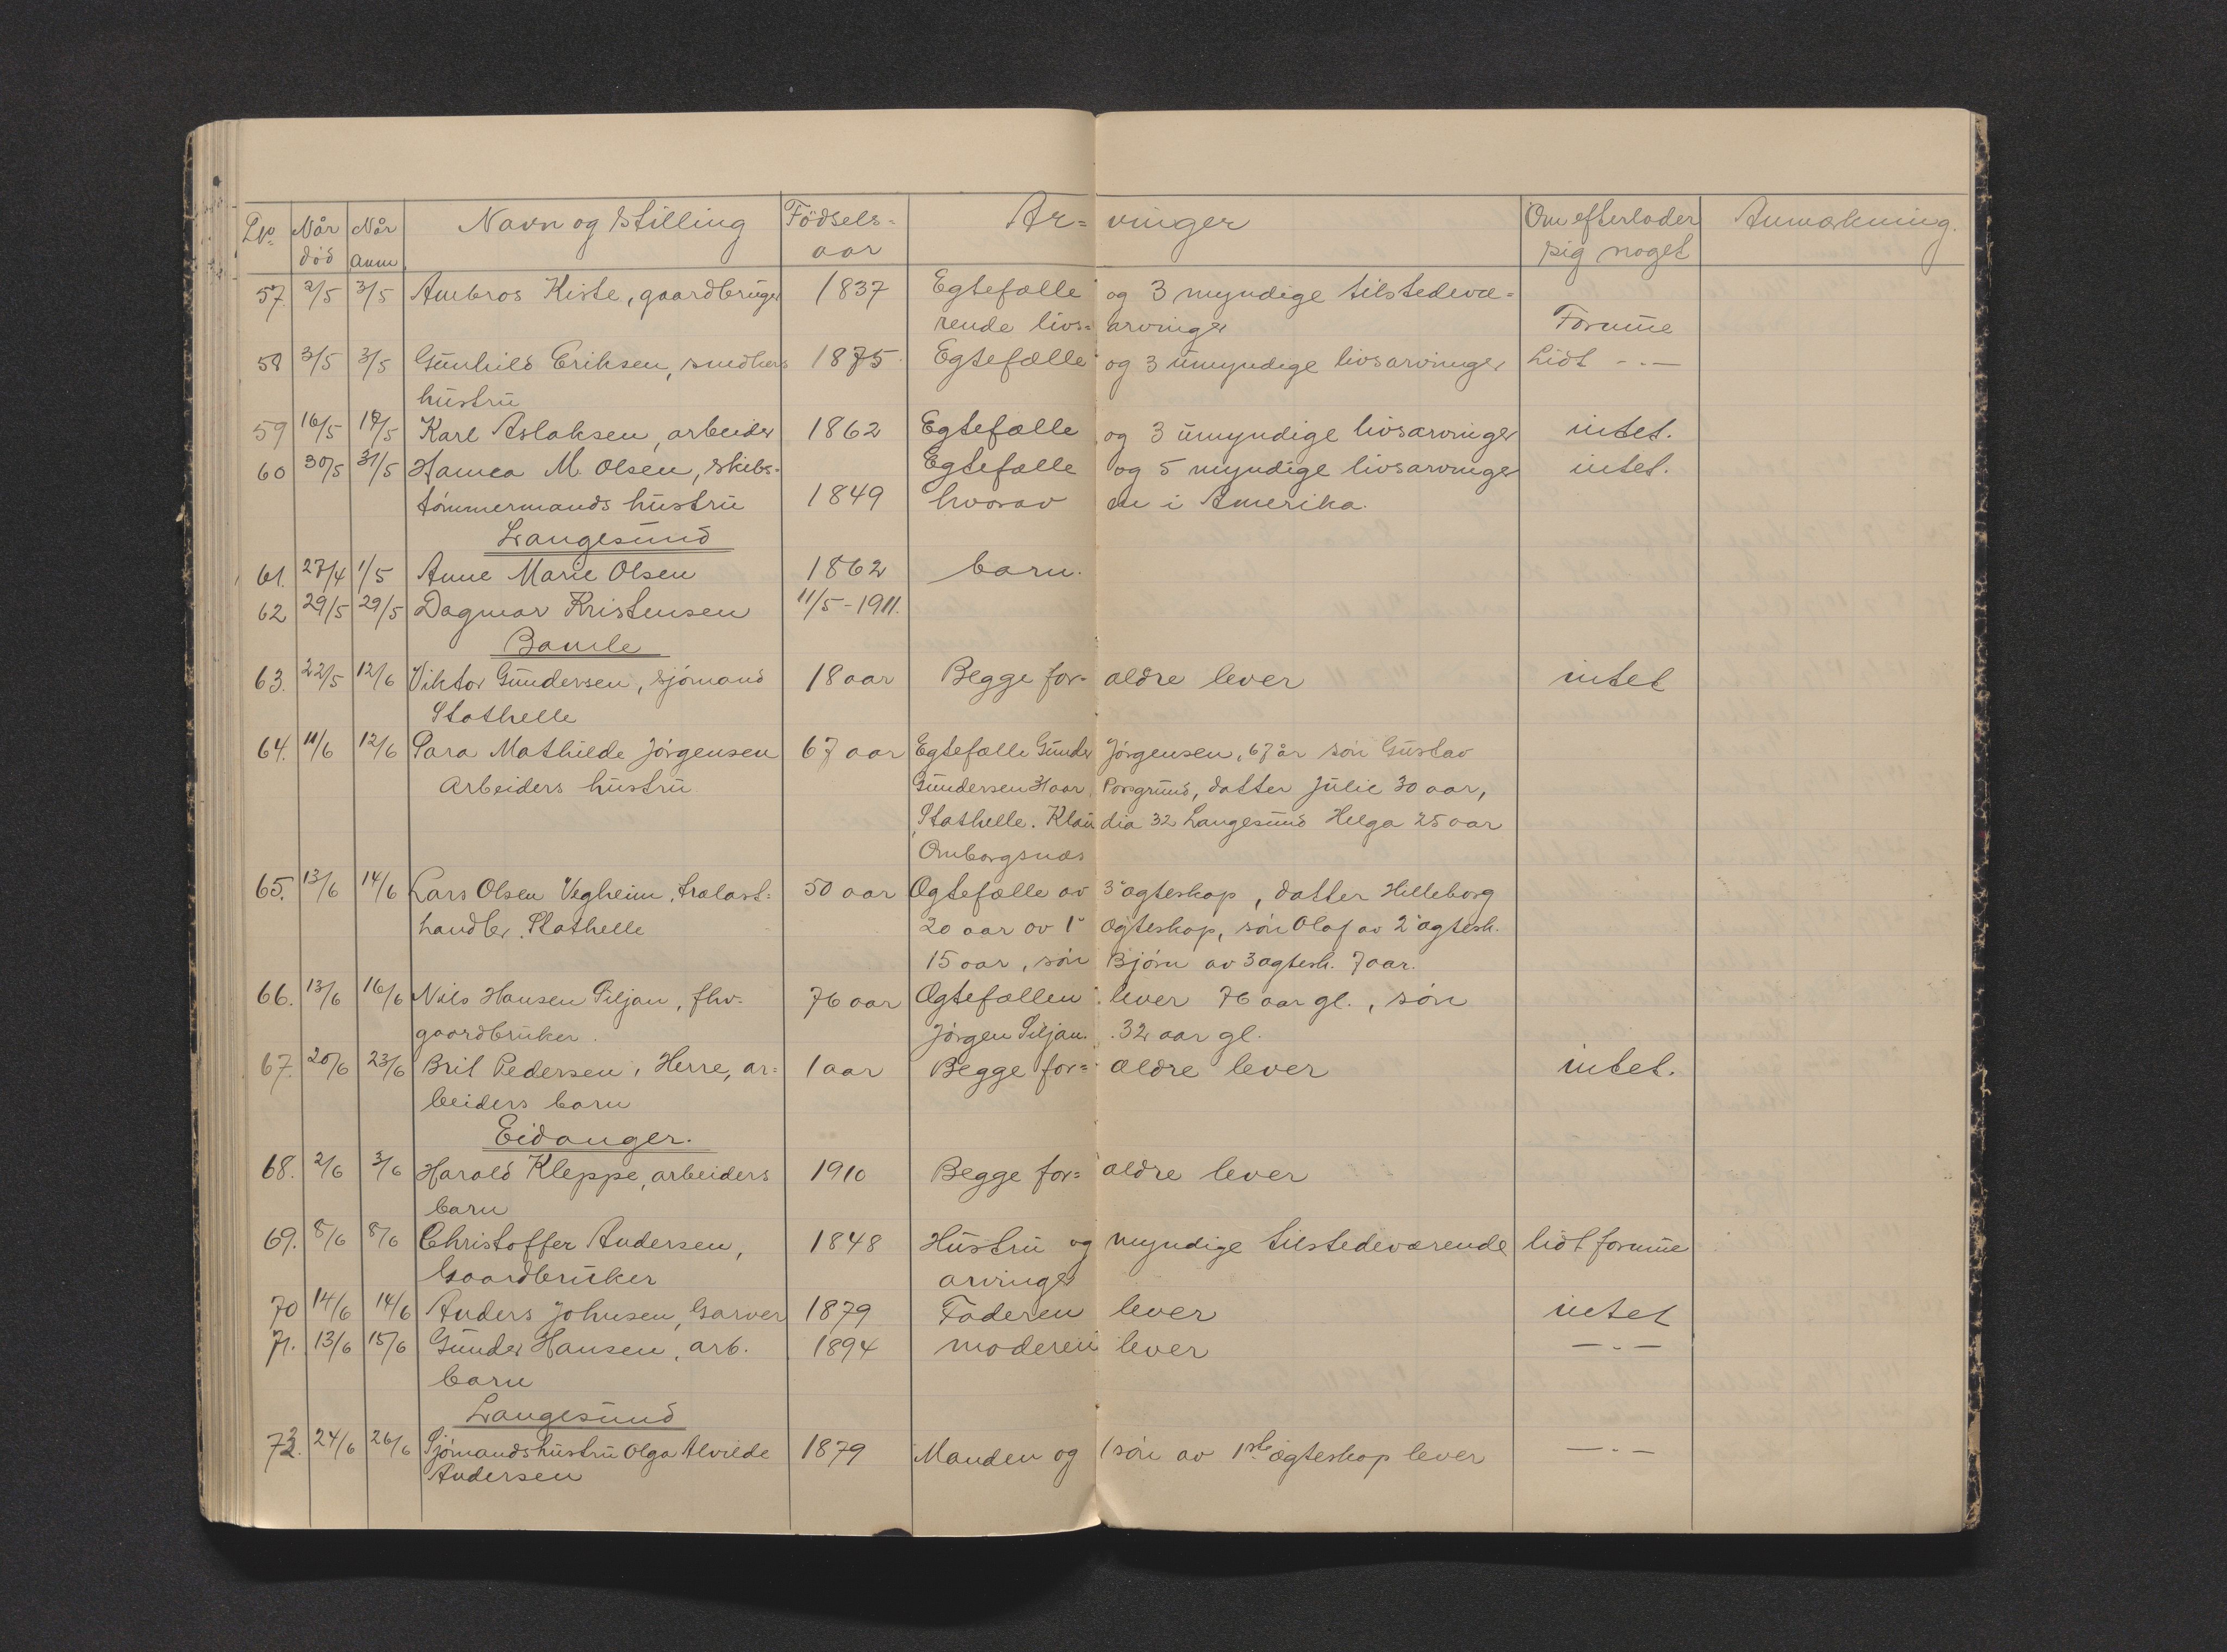 No Når Når Navn og Stilling Födsels- Ar= vinger Om efterlader Anmærkning.
död anm aar sig noget
57. 2/5 3/5 Ambros Kiste, gaardbruger 1837 Egtefælle og 3 myndige tilstedevæ=
rende livs= arvinger Formue
58 3/5 3/5 Gunhild Eriksen, smedhers 1875. Egtefælle og 3 umyndige livsarvinger Lidt -.-
hustru
59 16/5 17/5 Karl Aslaksen, arbeider 1862 Egtefælle og 3 umyndige livsarvinger intet.
60 30/5 31/5 Hanna M. Olsen, skibs- Egtefælle og 5 myndige livsarvinger intet.
tömmermands hustru 1849 hvorav en i Amerika.
Langesund
61. 27/4 1/5 Anne Marie Olsen 1862 barn.
62 29/5 29/5 Dagmar Kristensen 11/5-1911.
Bamle
63. 22/5 12/6 Viktor Gundersen, sjömand 18 aar Begge for= ældre lever intet
Stathelle
64. 11/6 12/6 Sara Mathilde Jörgensen 67 aar Egtefælle Gunder Jörgensen, 67 år sön Gustav
Arbeiders hustru Gundersen 31 aar Porsgrund, datter Julie 30 aar,
Stathelle. Klau dia 32 Langesund Helga 25 aar
Omborgsnæs
65. 13/6 14/6 Lars Olsen Vegheim, trælast= 50 aar Ægtefælle av 3" ægteskap, datter Hilleborg
handler. Stathelle 20 aar av 1" ægteskap, sön Olaf av 2" ægtesk.
15 aar, sön Björn av 3 ægtesk. 7 aar.
66. 13/6 16/6 Nils Hansen Siljan, fhv. 76 aar Ægtefællen lever 76 aar gl., sön
gaardbruker. Jörgen Siljan. 32 aar gl.
67. 20/6 23/6 Bril Pedersen, Herre, ar= 1 aar Begge for= ældre lever intet.
beiders barn
Eidanger.
68. 2/6 3/6 Harald Kleppe, arbeiders 1910 Begge for= ældre lever
barn
69. 8/6 8/6 Christoffer Andersen, 1848 Hustru og myndige tilstedeværende lidt formue
Gaardbruker arvinger
70 14/6 14/6 Anders Johnsen, Garver 1879 Faderen lever intet
71. 13/6 15/6 Gunder Hansen, arb. 1894 moderen lever -.-
barn
Langesund
72. 24/6 26/6 Sjömandshustru Olga Alvilde 1879 Manden og 1 sön av 1ste ægteskap lever -.-
Andersen